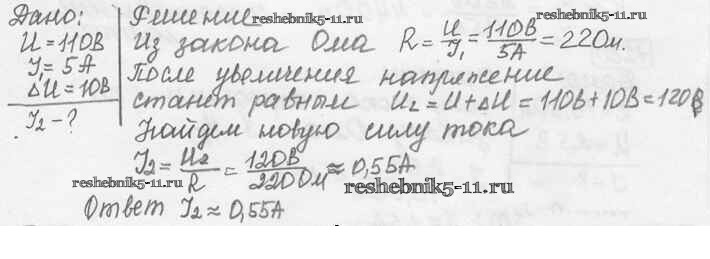 Дано:
U = 110В
I₁ = 5А
ΔU = 10В
I₂ - ?
Решение
reshebnik5-11.ru
reshebnik5-11.ru
Из закона Ома R = U/I₁ = 110В/5А = 22Ом.
После увеличения напряжение
станет равным U₂ = U + ΔU = 110В + 10В = 120В
Найдем новую силу тока
I₂ = U₂/R = 120В/220Ом ≈ 0,55А
reshebnik5-11.ru
reshebnik5-11.ru
Ответ I₂ ≈ 0,55А